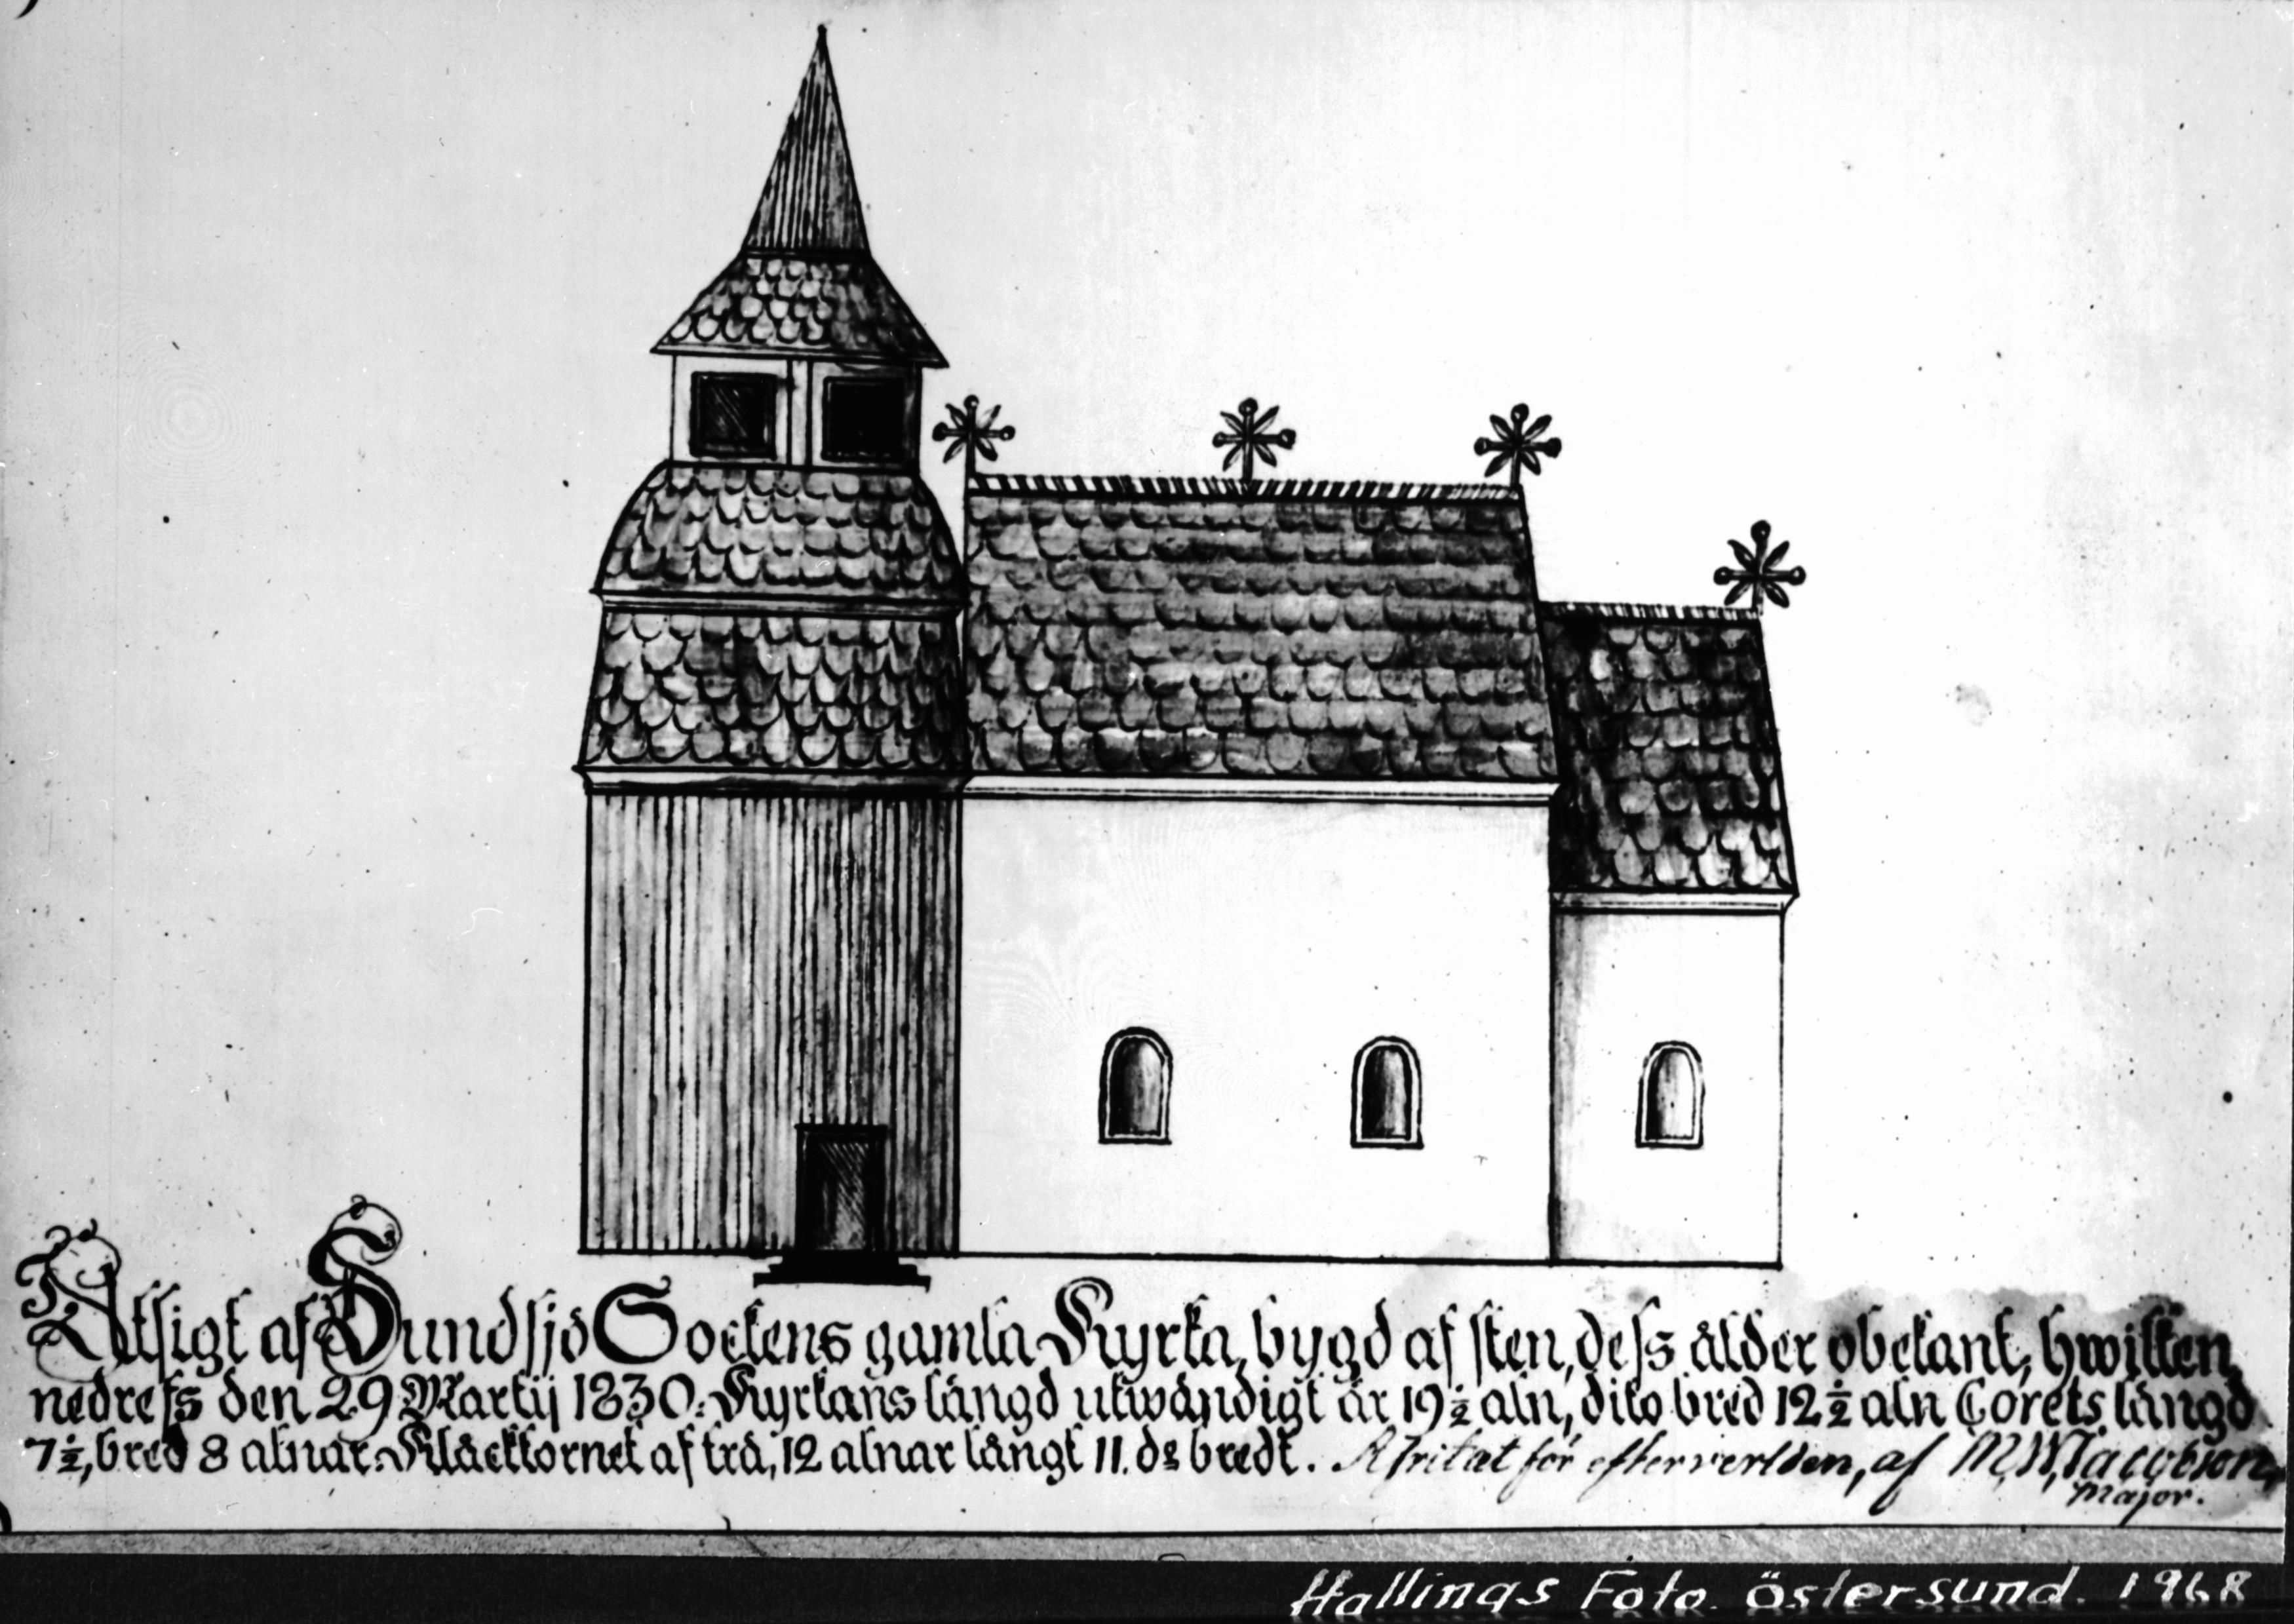 Utsigt af Sundsjö Sockens gamla Kyrka, bygd af sten, dess ålder obekant, hwilken
nedrefs den 29 Martij 1830. Kyrkans längd utwändigt är 19 ½ aln, dito bred 12 ½ aln Corets längd
7 ½, bred 8 alnar. Kläcktornet af trä, 12 alnar långt 11. do bredt. Afritat för efterverlden, af M. W. Jacobson,
Major.
Hallings Foto. Östersund. 1968